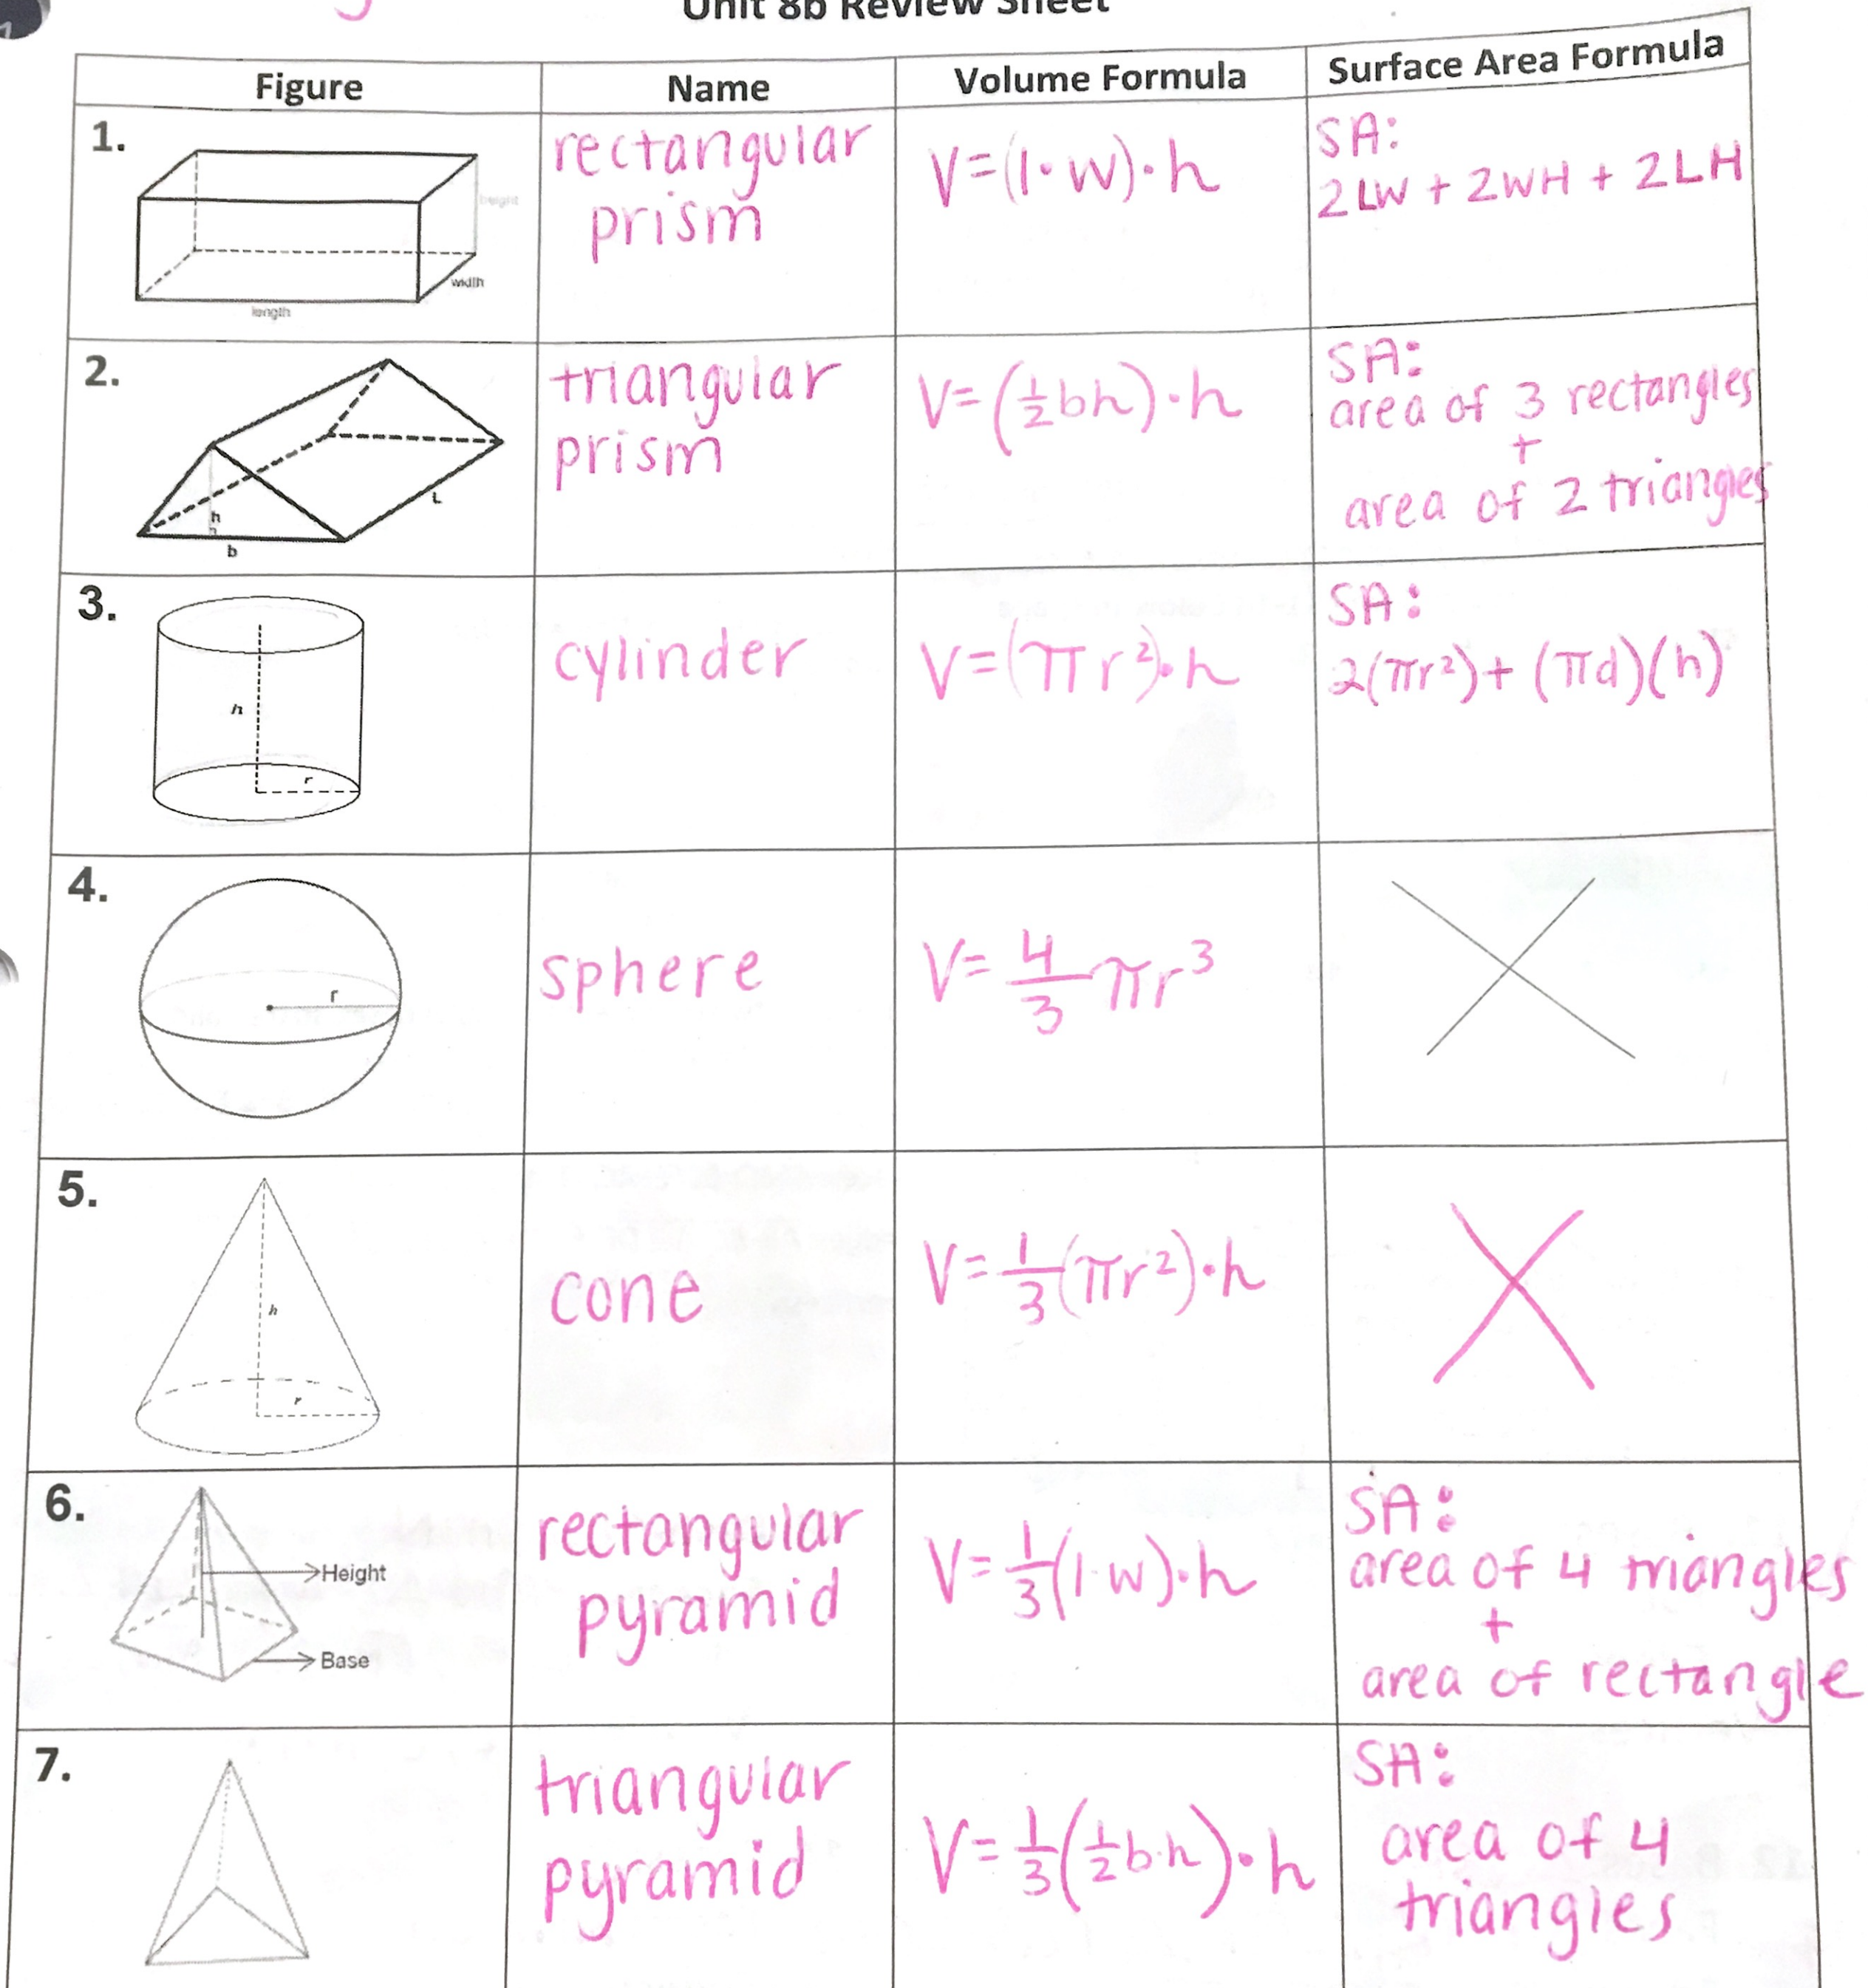 Unit 8b Review Sheet
Figure Name Volume Formula Surface Area Formula
1.
height
width
length
rectangular
prism
V=(l·w)·h
SA:
2LW + 2WH + 2LH
2.
h
b
L
triangular
prism
V=(½bh)·h
SA:
area of 3 rectangles
+
area of 2 triangles
3.
h
r
cylinder
V=(πr²)·h
SA:
2(πr²)+(πd)(h)
4.
r
sphere
V=4/3πr³
5.
h
r
cone
V=1/3(πr²)·h
6.
Height
Base
rectangular
pyramid
V=1/3(l·w)·h
SA:
area of 4 triangles
+
area of rectangle
7.
triangular
pyramid
V=1/3(½b·h)·h
SA:
area of 4
triangles